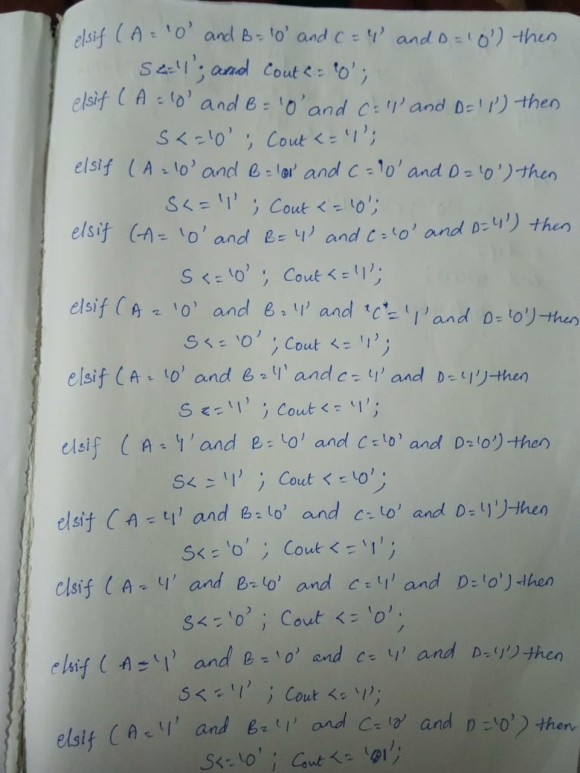 elsif (A = '0' and B = '0' and C = '1' and D = '0') then
S <= '1'; and Cout <= '0';
elsif (A = '0' and B = '0' and C = '1' and D = '1') then
S <= '0'; Cout <= '1';
elsif (A = '0' and B = '1' and C = '0' and D = '0') then
S <= '1'; Cout <= '0';
elsif (A = '0' and B = '1' and C = '0' and D = '1') then
S <= '0'; Cout <= '1';
elsif (A = '0' and B = '1' and 'C' = '1' and D = '0') then
S <= '0'; Cout <= '1';
elsif (A = '0' and B = '1' and C = '1' and D = '1') then
S <= '1'; Cout <= '1';
elsif (A = '1' and B = '0' and C = '0' and D = '0') then
S <= '1'; Cout <= '0';
elsif (A = '1' and B = '0' and C = '0' and D = '1') then
S <= '0'; Cout <= '1';
elsif (A = '1' and B = '0' and C = '1' and D = '0') then
S <= '0'; Cout <= '0';
elsif (A = '1' and B = '0' and C = '1' and D = '1') then
S <= '1'; Cout <= '1';
elsif (A = '1' and B = '1' and C = '0' and D = '0') then
S <= '0'; Cout <= '1';